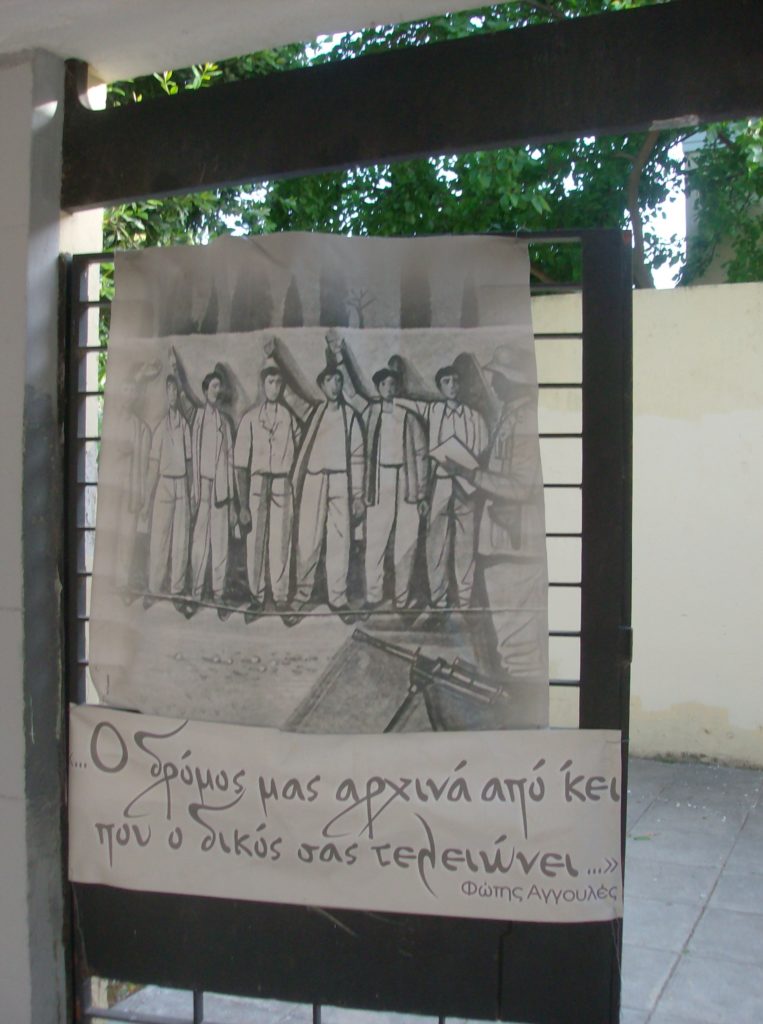 «...Ο δρόμος μας αρχινά από 'κει
που ο δικός σας τελειώνει...»
Φώτης Αγγουλές